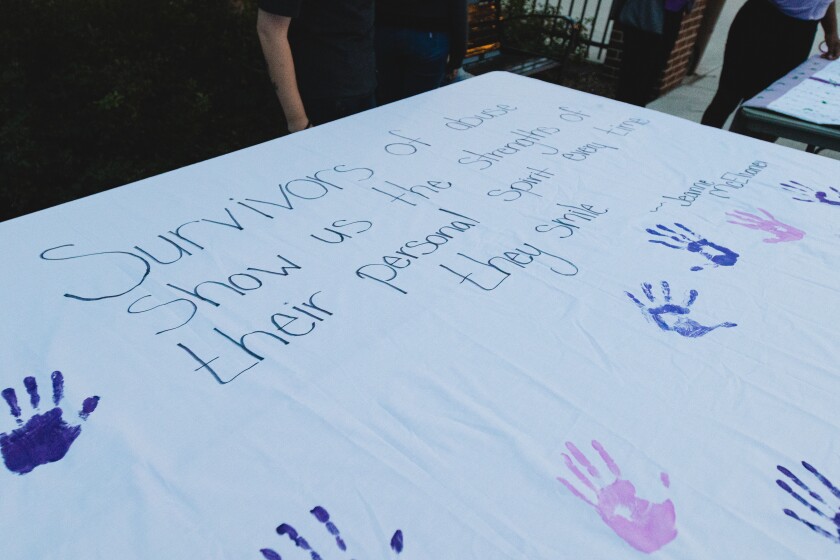 Survivors of abuse
show us the strengths of
their personal spirit every time
they smile
-- Jeanne
McElvaney